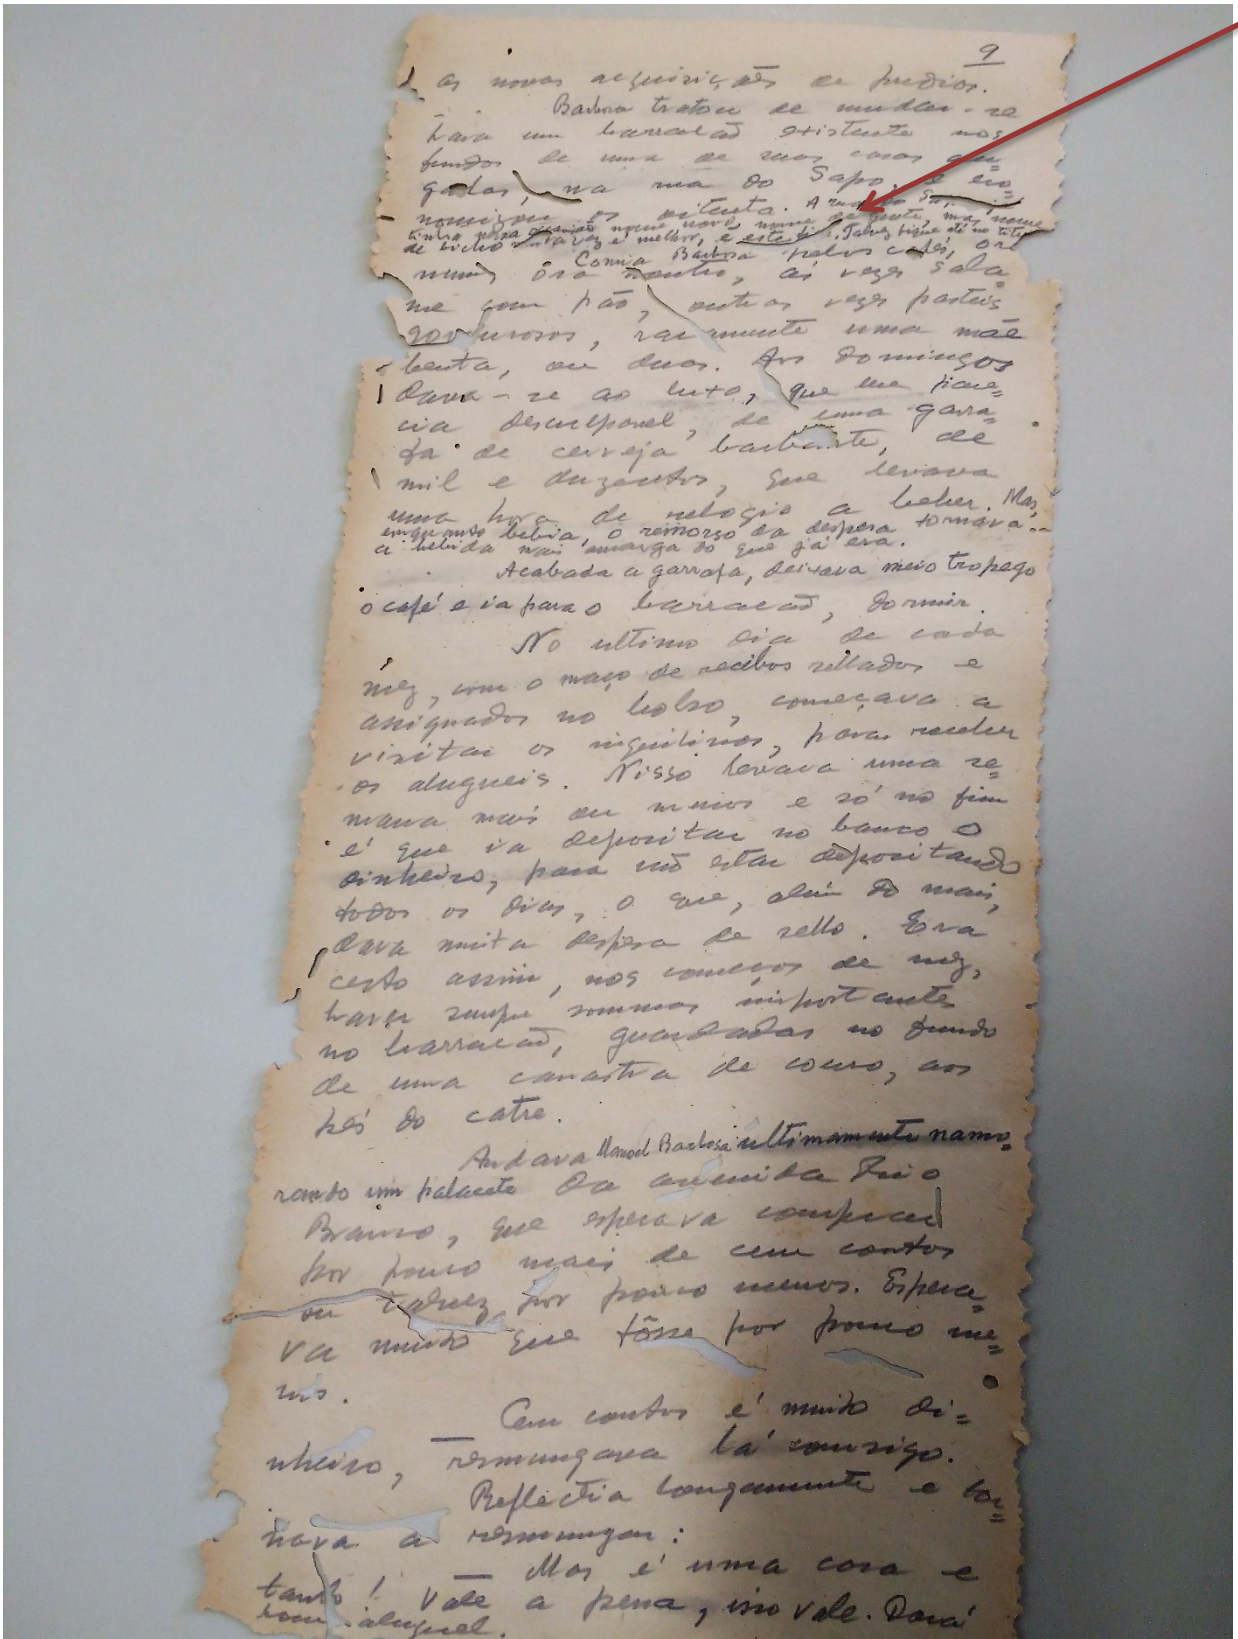 9
as novas acquisições de predios.
Barbosa tratou de mudar-se
para um barracão existente nos
fundos de uma de suas casas alu-
gadas, na rua do Sapo, e eco-
nomizou os oitenta. A rua do Sa
tinha nessa occasião nome novo, nome de gente, mas nome
de bicho é melhor, e este fica. Talvez fique até no titulo
Comia Barbosa pelos cafés, ora
num, ora noutro, ás vezes sala-
me com pão, outras vezes pasteis
gordurosos, raramente uma mãe
benta, ou duas. Aos domingos
dava-se ao luxo, que me pare-
cia desculpavel, de uma garra-
fa de cerveja barbante, de
mil e duzentos, que levava
uma hora de relogio a beber. Mas,
emquanto bebia, o remorso da despesa tornava-
a bebida mais amarga do que já era.
Acabada a garrafa, deixava meio tropego
o café e ia para o barracão, dormir.
No ultimo dia de cada
mez, com o maço de recibos sellados e
assignados no bolso, começava a
visitar os inquilinos, para receber
os alugueis. Nisso levava uma se-
mana mais ou menos e só no fim
é que ia depositar no banco o
dinheiro, para não estar depositando
todos os dias, o que, além do mais,
dava muita despesa de sello. Era
certo assim, nos começos de mez,
haver sempre sommas importantes
no barracão, guardadas no fundo
de uma canastra de couro, aos
pés do catre.
Andava Manoel Barbosa ultimamente namo-
rando um palacete da avenida Rio
Branco, que esperava comprar
por pouco mais de cem contos
ou talvez por pouco menos. Espera-
va muito que fôsse por pouco me-
nos.
Cem contos é muito di-
nheiro, resmungava lá comsigo.
Reflectia longamente e tor-
nava a resmungar:
— Mas é uma casa e
tanto! Vale a pena, isso vale. Dará
bom aluguel.